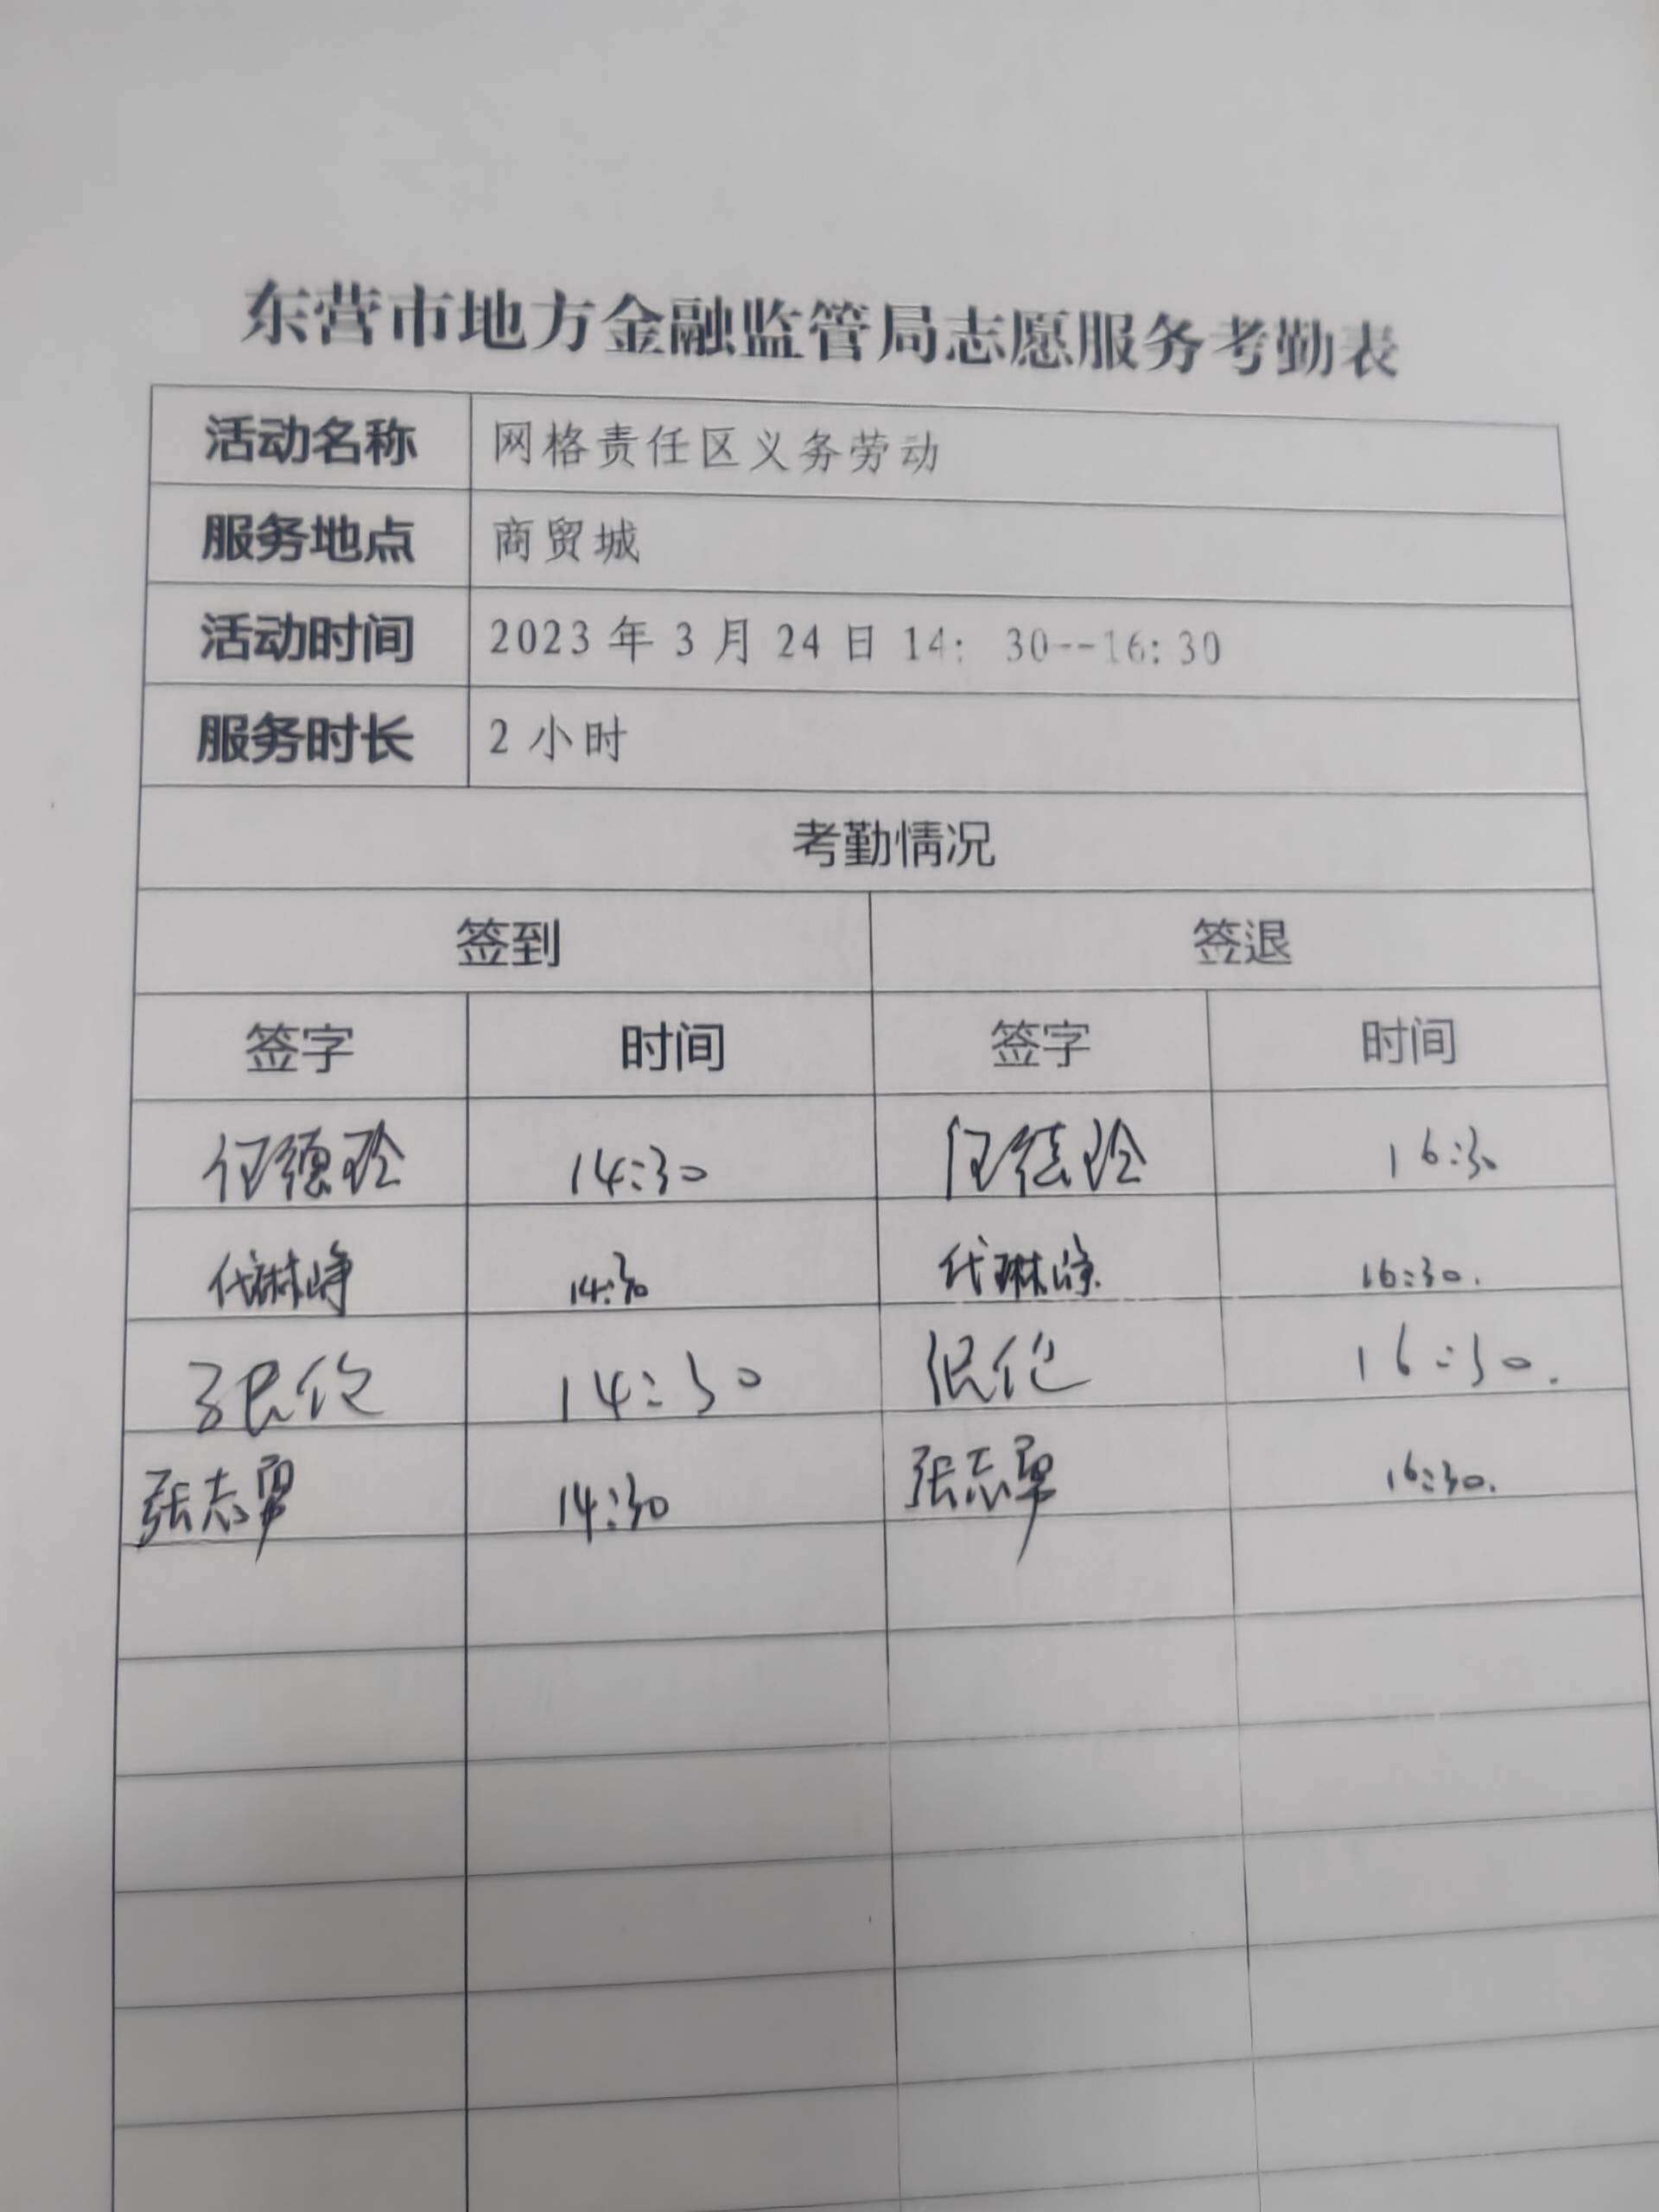 东营市地方金融监管局志愿服务考勤表
活动名称 网格责任区义务劳动
服务地点 商贸城
活动时间 2023年3月24日14：30--16:30
服务时长 2小时
考勤情况
签到 签退
签字 时间 签字 时间
14:30 16:30
代琳峥 14:30 代琳峥 16:30.
14:30 16:30.
张志勇 14:30 张志勇 16:30.